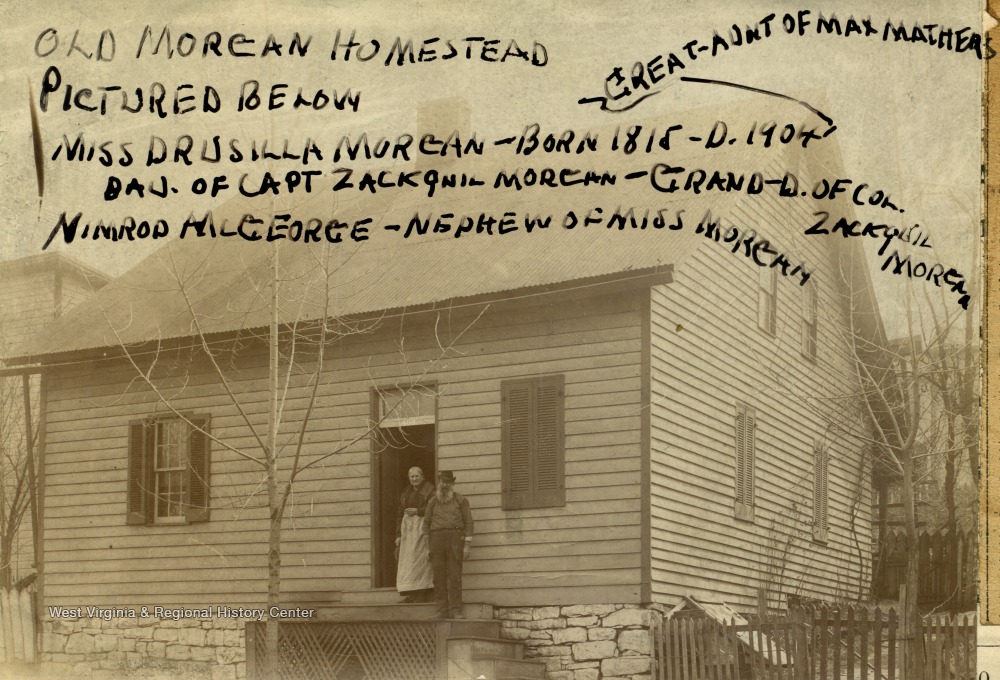 OLD MORGAN HOMESTEAD
GREAT-AUNT OF MAX MATHERS
PICTURED BELOW
MISS DRUSILLA MORGAN - BORN 1815 - D. 1904
DAU. OF CAPT ZACKQUIL MORGAN - GRAND-D. OF COL. ZACKQUIL MORGAN
NIMROD McGEORGE - NEPHEW OF MISS MORGAN
West Virginia & Regional History Center